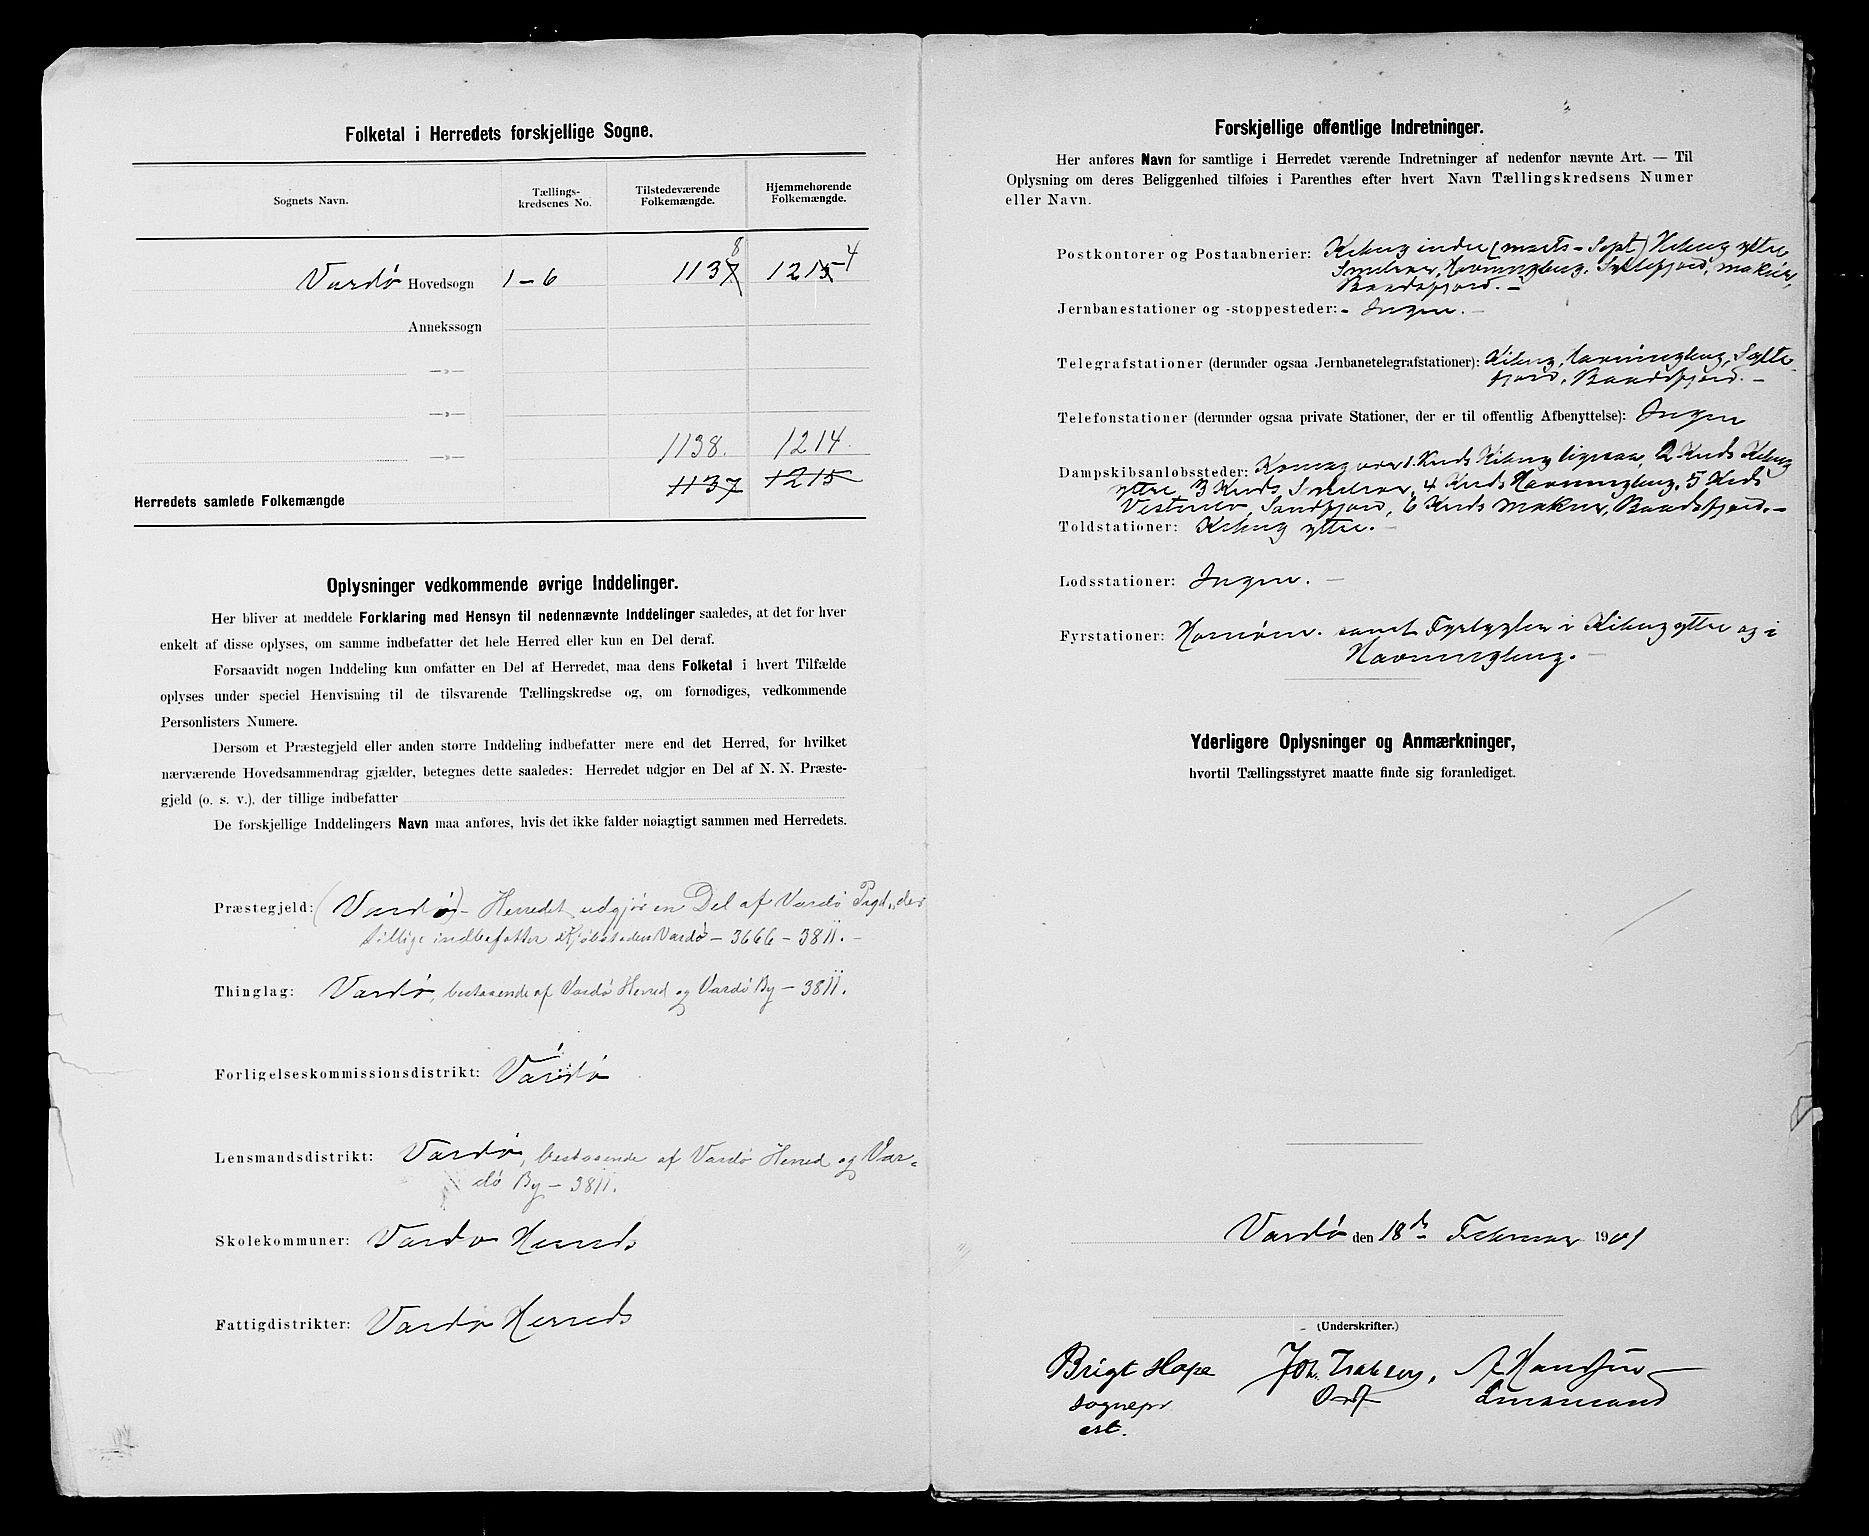 Folketal i Herredets forskjellige Sogne.
Sognets Navn. Tællings-kredsenes No. Tilstedeværende Folkemængde. Hjemmehørende Folkemængde.
Vardø Hovedsogn 1-6 1137 8 1215 4
Annekssogn
—»—
—»—
—»— 1138. 1214.
1137 1215
Herredets samlede Folkemængde
Oplysninger vedkommende øvrige Inddelinger.
Her bliver at meddele Forklaring med Hensyn til nedennævnte Inddelinger saaledes, at det for hver
enkelt af disse oplyses, om samme indbefatter det hele Herred eller kun en Del deraf.
Forsaavidt nogen Inddeling kun omfatter en Del af Herredet, maa dens Folketal i hvert Tilfælde
oplyses under speciel Henvisning til de tilsvarende Tællingskredse og, om fornødiges, vedkommende
Personlisters Numere.
Dersom et Præstegjeld eller anden større Inddeling indbefatter mere end det Herred, for hvilket
nærværende Hovedsammendrag gjælder, betegnes dette saaledes: Herredet udgjør en Del af N. N. Præste-
gjeld (o. s. v.), der tillige indbefatter
De forskjellige Inddelingers Navn maa anføres, hvis det ikke falder nøiagtigt sammen med Herredets.
Præstegjeld: (Vardø) - Herredet udgjør en Del af Vardø Prgd., der
tillige indbefatter Kjøbstaden Vardø - 3666 - 3811. -
Thinglag: Vardø, bestaaende af Vardø Herred og Vardø By - 3811.
Forligelseskommissionsdistrikt: Vardø
Lensmandsdistrikt: Vardø, bestaaende af Vardø Herred og Var-
dø By - 3811.
Skolekommuner: Vardø Herreds
Fattigdistrikter: Vardø Herreds
Forskjellige offentlige Indretninger.
Her anføres Navn for samtlige i Herredet værende Indretninger af nedenfor nævnte Art. — Til
Oplysning om deres Beliggenhed tilføies i Parenthes efter hvert Navn Tællingskredsens Numer
eller Navn.
Postkontorer og Postaabnerier: Kiberg indre (marts - Sept) Kiberg ytre
Smelror, Havningberg, Syltefjord, Makur,
Baadsfjord. -
Jernbanestationer og -stoppesteder: - Ingen. -
Telegrafstationer (derunder ogsaa Jernbanetelegrafstationer): Kiberg, Havningberg, Sylte-
fjord, Baadsfjord. -
Telefonstationer (derunder ogsaa private Stationer, der er til offentlig Afbenyttelse): Ingen
Dampskibsanløbssteder: 1 Kreds Kiberg 2 Kreds Kiberg
ytre 3 Kreds Smelror, 4 Kreds Havningberg, 5 Kreds
Sandfjord, 6 Kreds Makur, Baadsfjord. -
Toldstationer: Kiberg ytre. -
Lodsstationer: Ingen. -
Fyrstationer: Hornøen. samt Fyrlygter i Kiberg ytre og i
Havningberg. -
Yderligere Oplysninger og Anmærkninger,
hvortil Tællingsstyret maatte finde sig foranlediget.
Vardø den 18de Februar 1901
(Underskrifter.)
Brigt Hope Joh. A. Hansen
sognepr Ordf Lensmand
est.